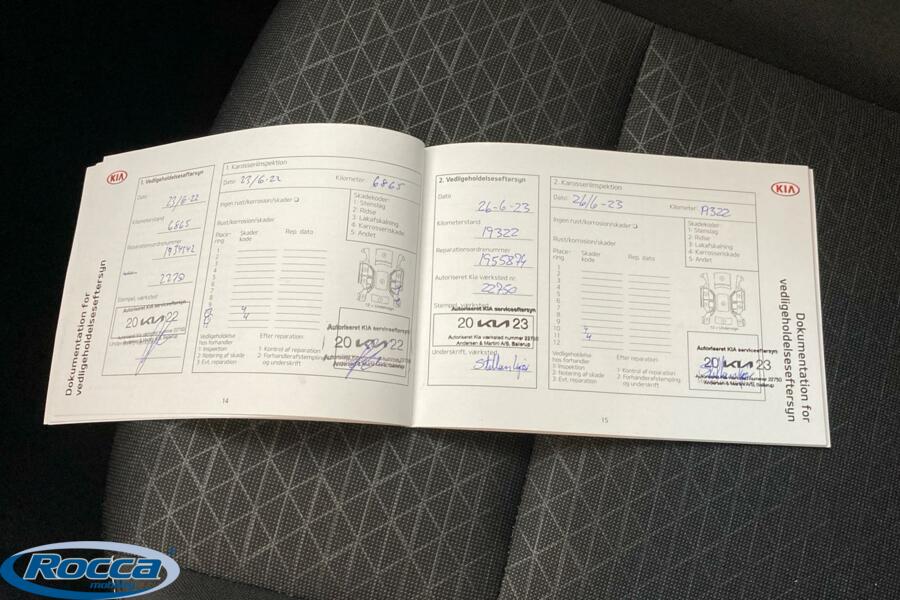 KIA
Dokumentation for
vedligeholdelseseftersyn
1. Vedligeholdelseseftersyn
Dato 23/6-22
Kilometerstand
6865
Reparationsordrenummer
2250
Stempel, værksted
Autoriseret KIA serviceeftersyn
20 KIA 22
1. Karosseriinspektion
Dato: 23/6-22
Kilometer: 6865
Ingen rust/korrosion/skader
Rust/korrosion/skader
Skadekoder:
1: Stenslag
2: Ridse
3: Lakafskalning
4: Karrosseriskade
5: Andet
Place-
ring
Skader
kode
Rep. dato
1
2
3
4
5
6
7
8
9
4
4
Vedligeholdelse
hos forhandler
1: Inspektion
2: Notering af skade
3: Evt. reparation
Efter reparation:
1: Kontrol af reparation
2: Forhandlerafstempling
og underskrift
Autoriseret KIA serviceeftersyn
20 KIA 22
Autoriseret Kia værksted nummer 22750
14
KIA
Dokumentation for
vedligeholdelseseftersyn
2. Vedligeholdelseseftersyn
Dato
26-6-23
Kilometerstand
19322
Reparationsordrenummer
1955874
Autoriseret KIA værksted nr.
22750
Stempel, værksted
Autoriseret KIA serviceeftersyn
20 KIA 23
Autoriseret Kia værksted nummer 22750
Andersen & Martini A/S, Ballerup
Underskrift, værksted
2. Karosseriinspektion
Dato: 26/6-23
Kilometer: 19322
Ingen rust/korrosion/skader
Rust/korrosion/skader
Skadekoder:
1: Stenslag
2: Ridse
3: Lakafskalning
4: Karrosseriskade
5: Andet
Place-
ring
Skader
kode
Rep. dato
1
2
3
4
5
6
7
8
9
10
11
12
4
4
12 = Undervogn
Vedligeholdelse
hos forhandler
1: Inspektion
2: Notering af skade
3: Evt. reparation
Efter reparation:
1: Kontrol af reparation
2: Forhandlerafstempling
og underskrift
Autoriseret KIA serviceeftersyn
20 KIA 23
Autoriseret Kia værksted nummer 22750
Andersen & Martini A/S, Ballerup
15
Rocca